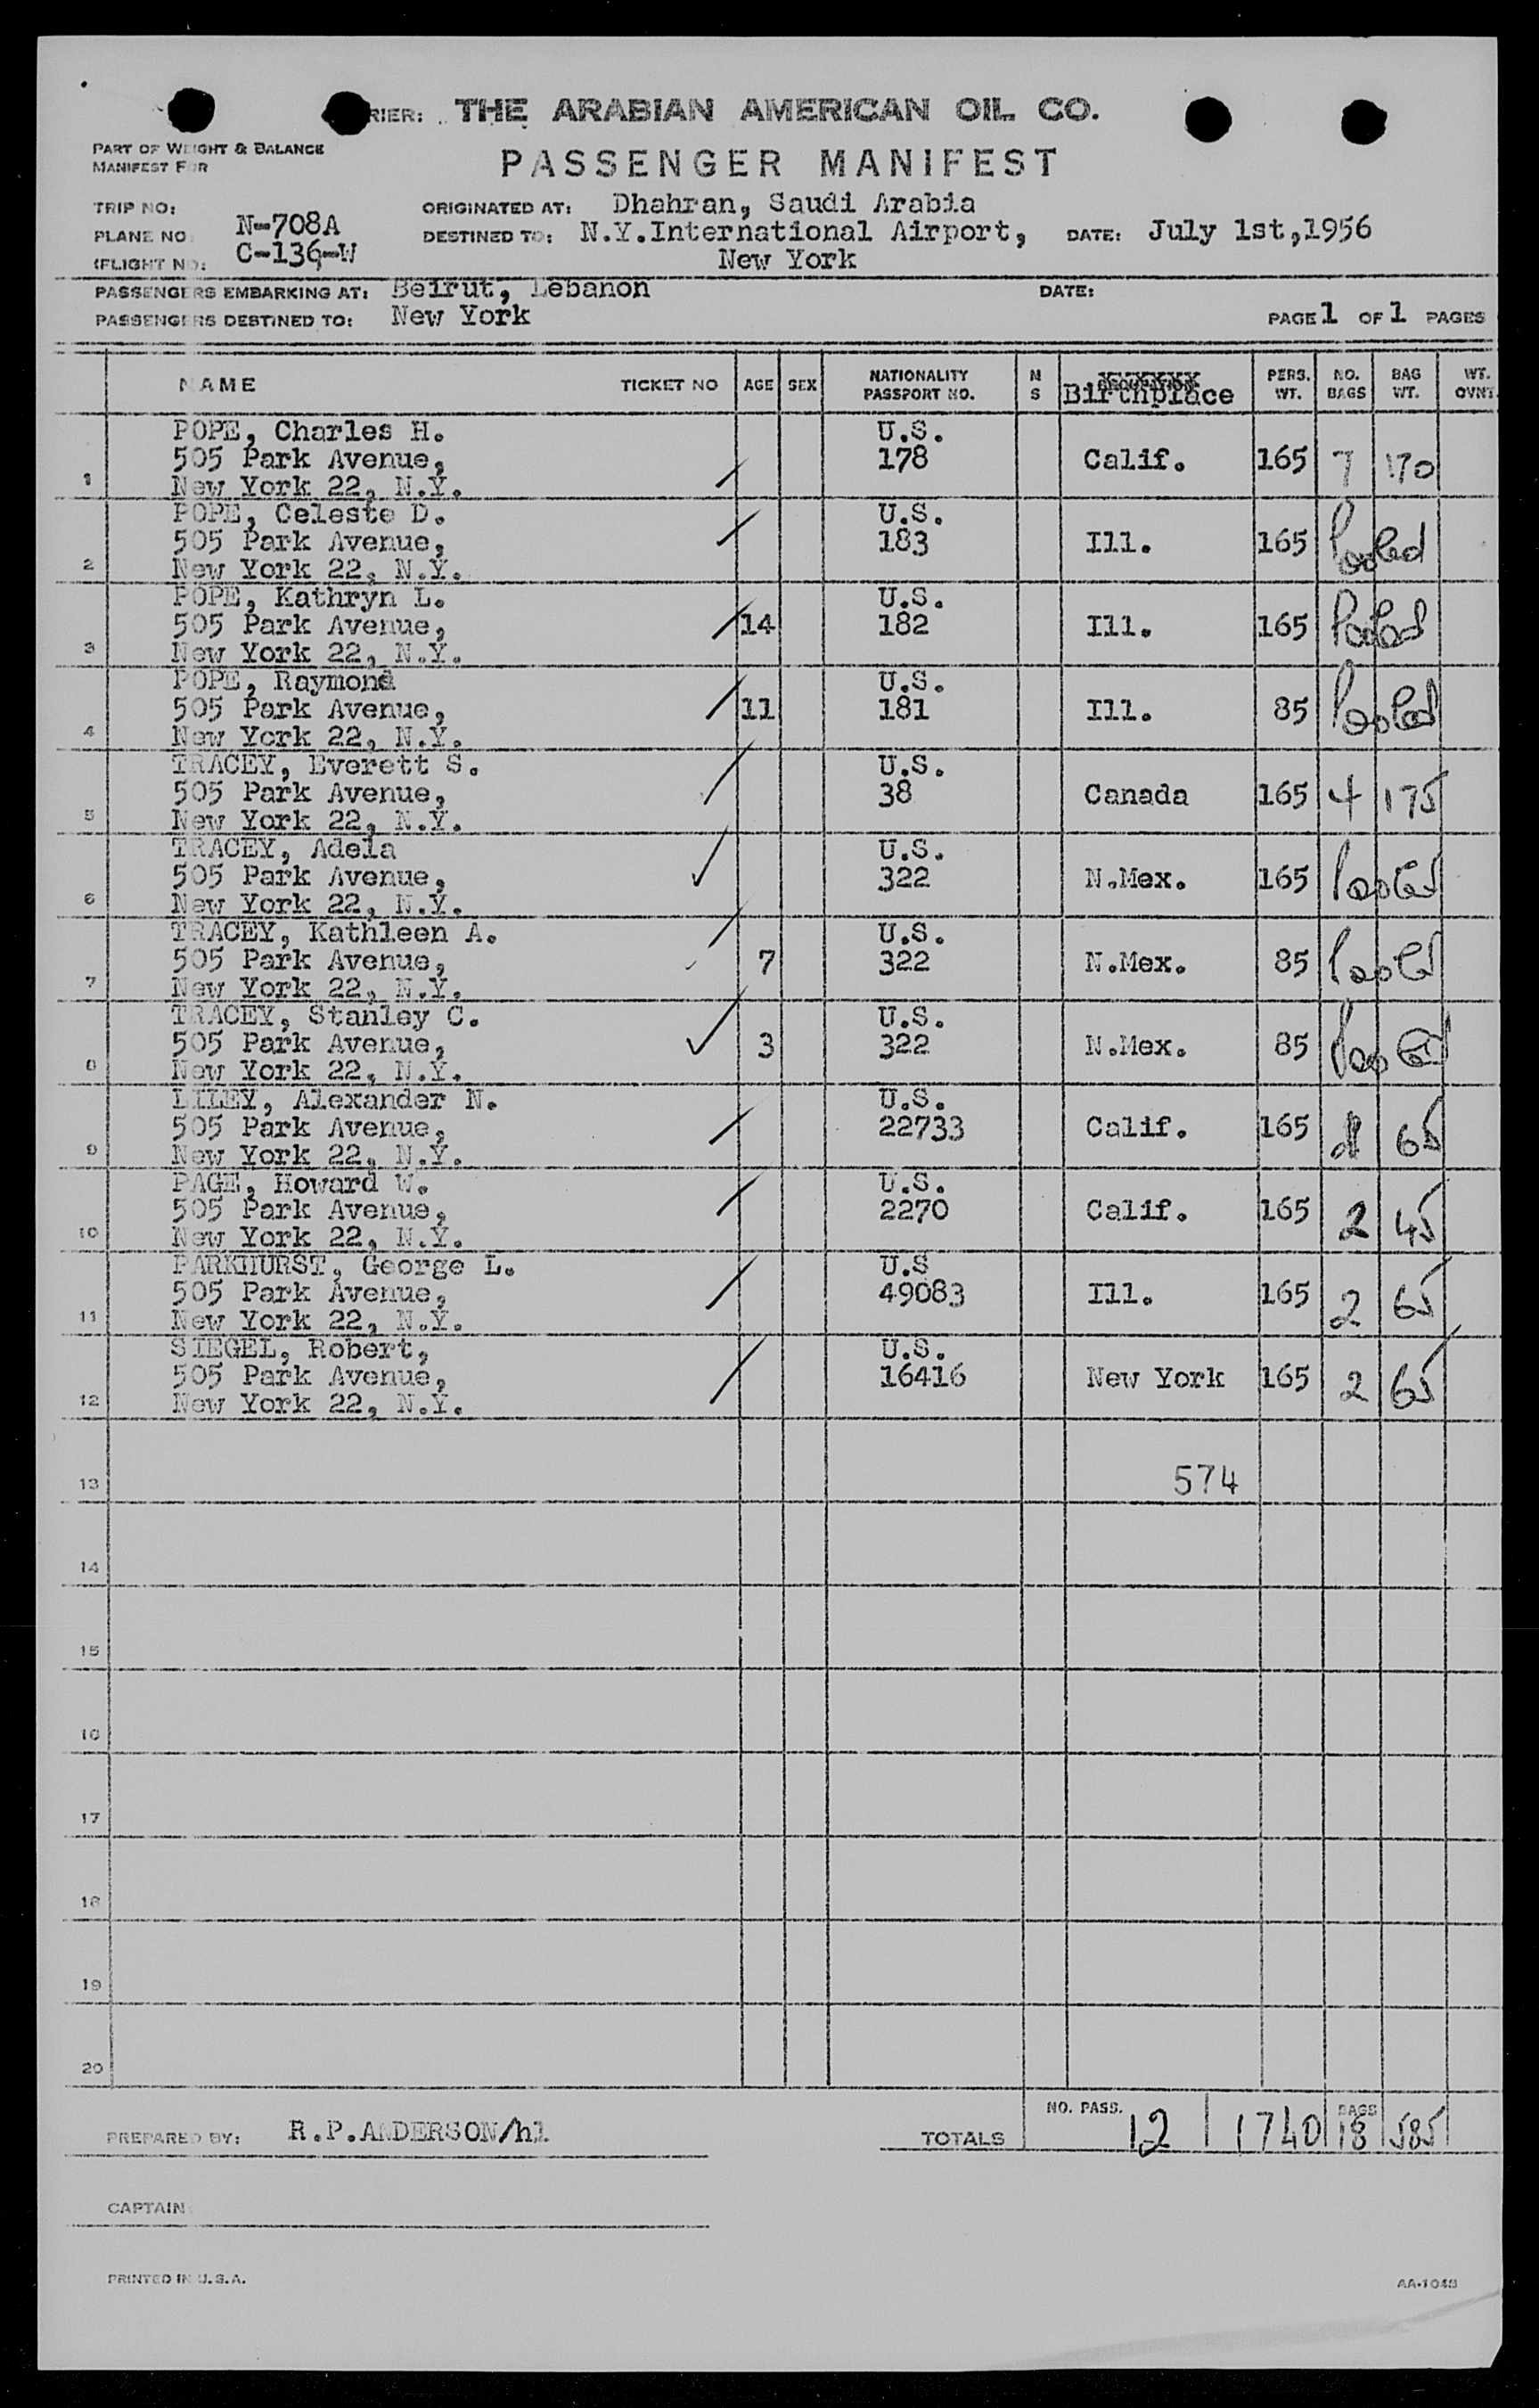 RIER: THE ARABIAN AMERICAN OIL CO.
PART OF WEIGHT & BALANCE
MANIFEST FOR
PASSENGER MANIFEST
TRIP NO:
ORIGINATED AT: Dhahran, Saudi Arabia
PLANE NO: N-708A
DESTINED TO: N.Y.International Airport, DATE: July 1st,1956
(FLIGHT NO: C-136-W
New York
PASSENGERS EMBARKING AT: Beirut, Lebanon DATE:
PASSENGERS DESTINED TO: New York PAGE 1 OF 1 PAGES
NAME TICKET NO AGE SEX NATIONALITY PASSPORT NO. M S Birthplace PERS. WT. NO. BAGS BAG WT. WT. OVNT.
POPE, Charles H. U.S.
505 Park Avenue, 178 Calif. 165 7 170
1 New York 22, N.Y.
POPE, Celeste D. U.S.
505 Park Avenue, 183 Ill. 165 Pooled
2 New York 22, N.Y.
POPE, Kathryn L. U.S.
505 Park Avenue, 14 182 Ill. 165 Pooled
3 New York 22, N.Y.
POPE, Raymond U.S.
505 Park Avenue, 11 181 Ill. 85 Pooled
4 New York 22, N.Y.
TRACEY, Everett S. U.S.
505 Park Avenue, 38 Canada 165 4 175
5 New York 22, N.Y.
TRACEY, Adela U.S.
505 Park Avenue, 322 N.Mex. 165 Pooled
6 New York 22, N.Y.
TRACEY, Kathleen A. U.S.
505 Park Avenue, 7 322 N.Mex. 85 Pooled
7 New York 22, N.Y.
TRACEY, Stanley C. U.S.
505 Park Avenue, 3 322 N.Mex. 85 Pooled
8 New York 22, N.Y.
LILEY, Alexander N. U.S.
505 Park Avenue, 22733 Calif. 165 65
9 New York 22, N.Y.
PAGE, Howard W. U.S.
505 Park Avenue, 2270 Calif. 165 2 45
10 New York 22, N.Y.
PARKHURST, George L. U.S
505 Park Avenue, 49083 Ill. 165 2 65
11 New York 22, N.Y.
SIEGEL, Robert, U.S.
505 Park Avenue, 16416 New York 165 2 65
12 New York 22, N.Y.
13 574
14
15
16
17
18
19
20
PREPARED BY: R.P.ANDERSON/hl TOTALS NO. PASS. 12 1740 BAGS 18 585
CAPTAIN
PRINTED IN U.S.A. AA-1048